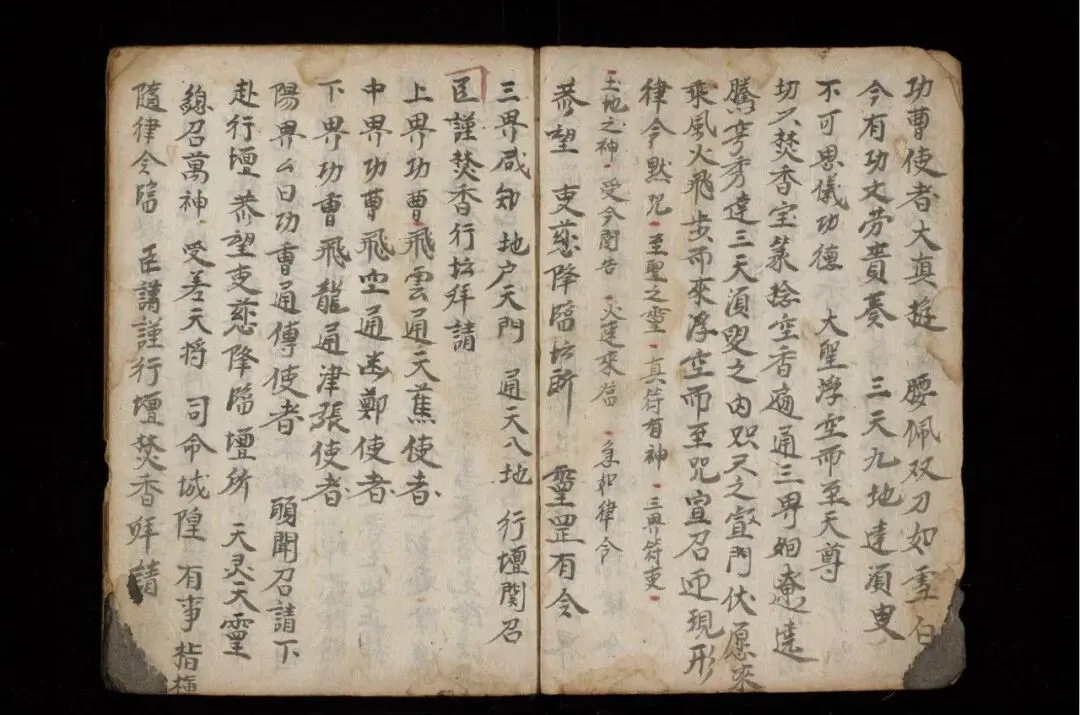 功曹使者大真挺　腰佩双刀如雪白
今有功文劳賫奏　三天九地達湏叟
不可思儀功德　大聖浮空而至天尊
切以焚香宝篆捻空香遍通三界
騰穹秀達三天湏臾之内咫尺之宣門伏愿來
乘風火飛步而來浮空而至咒宣召而現形
律令黙咒　至聖之靈　真符有神　三界符吏
土地之神　受今関告　火速來臨　急如律令
恭望　吏慈降臨坛所　靈罡有令
三界咸知地户天門　通天八地　行壇関召
臣謹焚香行坛拜請
上界功曹飛雲通天蕉使者
中界功曹飛空通幽鄭使者
下界功曹飛龍通津張使者
陽界么曰功曹通傳使者　頭聞召請下
赴行壇　恭望吏慈降臨壇所　天灵天靈
總召萬神　受差天将　司命城隍　有事指揮
隨律令臨　臣謹謹行壇焚香拜請